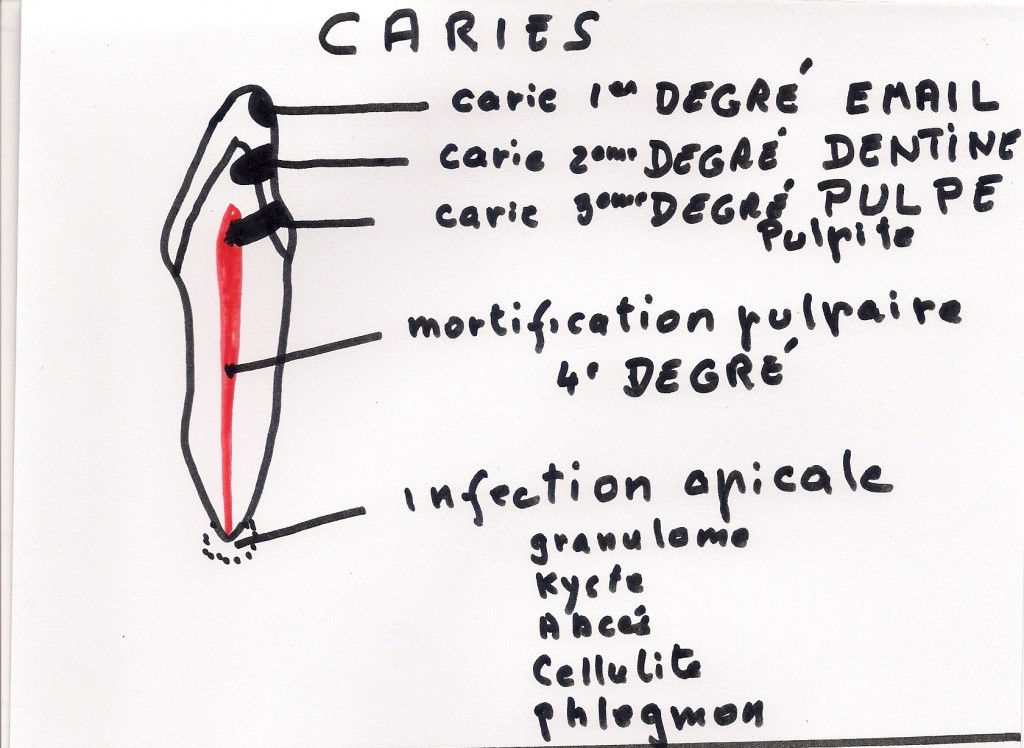 CARIES
carie 1er DEGRÉ EMAIL
carie 2eme DEGRÉ DENTINE
carie 3eme DEGRÉ PULPE
Pulpite
mortification pulpaire
4e DEGRÉ
infection apicale
granulome
Kyste
Abcés
Cellulite
phlegmon